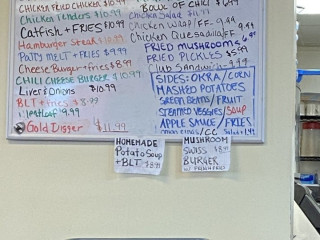 CHICKEN FRIED CHICKEN $10.99
Chicken Tenders $10.99
Catfish + FRIES $10.99
Hamburger Steak $10.99
Patty MELT + FRIES $9.99
Cheese Burger + fries $8.99
CHILI CHEESE BURGER $10.99
Liver & Onions $10.99
BLT + fries $8.99
Meatloaf 9.99
Gold Digger $11.99
BOWL OF CHILI
Chicken SALAD
Chicken WRAP W/FF 9.99
Chicken Quesadilla FF 9.99
FRIED MUSHROOMS 6.99
FRIED PICKLES $5.99
Club SANDWICH
SIDES: OKRA/CORN
MASHED POTATOES
GREEN BEANS/FRUIT
STEAMED VEGGIES/SOUP
APPLE SAUCE/FRIES
HOMEMADE
Potato Soup
+ BLT $8.99
MUSHROOM
SWISS $8.99
BURGER
W/ FRENCH FRIES